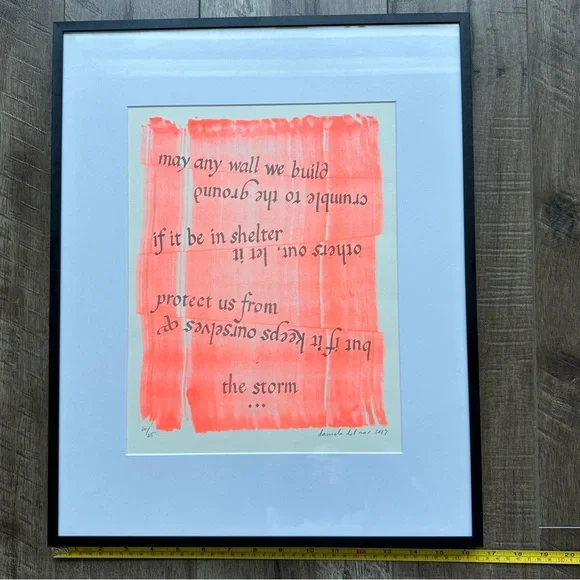 may any wall we build
crumble to the ground
if it be in shelter
others out, let it
protect us from
but if it keeps ourselves &
the storm
...
20/25
daniela del mar 2017
2 3 4 5 6 7 8 9 10 11 13 14 15 16 17 18 19 20